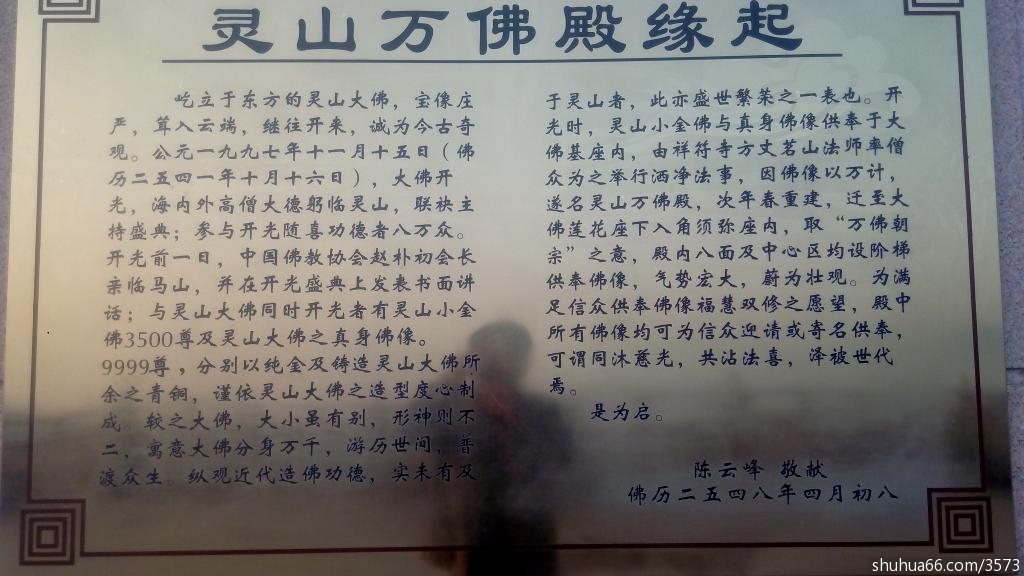 灵山万佛殿缘起
屹立于东方的灵山大佛，宝像庄
严，耸入云端，继往开来，诚为今古奇
观。公元一九九七年十一月十五日（佛
历二五四一年十月十六日），大佛开
光，海内外高僧大德躬临灵山，联袂主
持盛典；参与开光随喜功德者八万众。
开光前一日，中国佛教协会赵朴初会长
亲临马山，并在开光盛典上发表书面讲
话；与灵山大佛同时开光者有灵山小金
佛3500尊及灵山大佛之真身佛像。
9999尊，分别以纯金及铸造灵山大佛所
余之青铜，谨依灵山大佛之造型度心制
成。较之大佛，大小虽有别，形神则不
二，寓意大佛分身万千，游历世间，普
渡众生。纵观近代造佛功德，实未有及
于灵山者，此亦盛世繁荣之一表也。开
光时，灵山小金佛与真身佛像供奉于大
佛基座内，由祥符寺方丈茗山法师率僧
众为之举行洒净法事，因佛像以万计，
遂名灵山万佛殿，次年春重建，迁至大
佛莲花座下入角须弥座内，取“万佛朝
宗”之意，殿内八面及中心区均设阶梯
供奉佛像，气势宏大，蔚为壮观。为满
足信众供奉佛像福慧双修之愿望，殿中
所有佛像均可为信众迎请或寄名供奉，
可谓同沐慈光，共沾法喜，泽被世代
焉。
是为启。
陈云峰 敬献
佛历二五四八年四月初八
shuhua66.com/3573